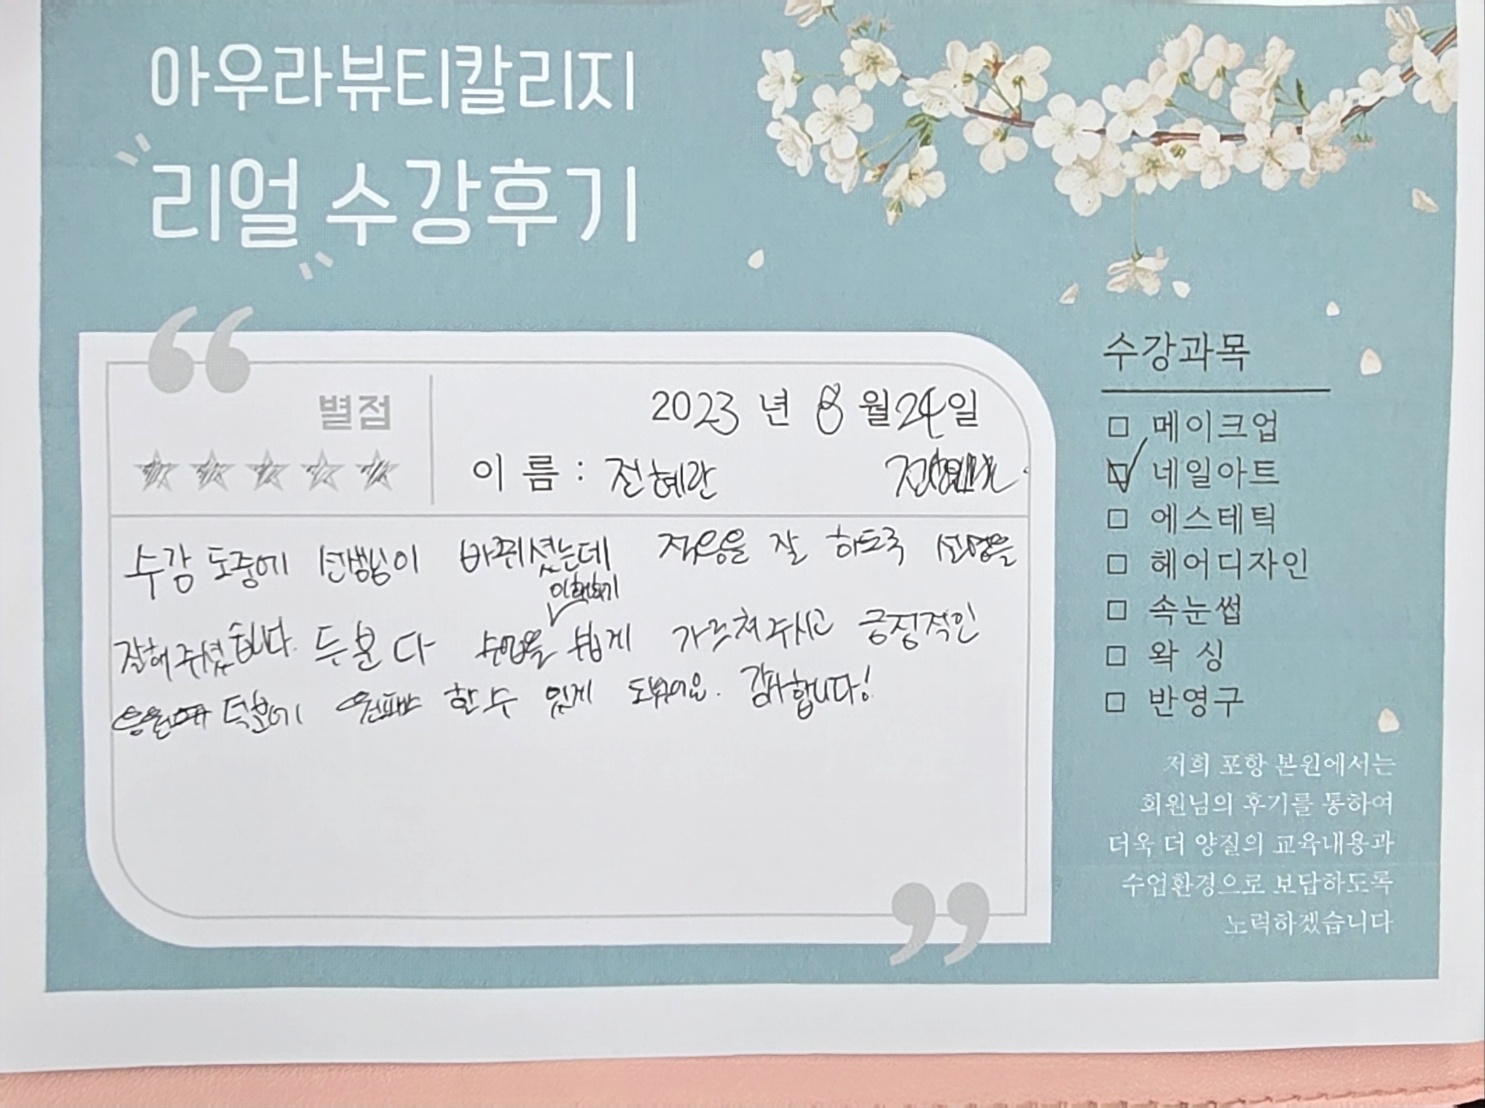 아우라뷰티칼리지
리얼 수강후기
별점
2023 년 8 월 24 일
이 름 : 전혜란
수강 도중에 선생님이 바뀌셨는데 적응을 잘 하도록 설명을
잘해주셨습니다. 두분 다 수업을 이해하기 쉽게 가르쳐주시고 긍정적인
덕분에 한 수 있게 도와줘요. 감사합니다!
수강과목
□ 메이크업
☑ 네일아트
□ 에스테틱
□ 헤어디자인
□ 속눈썹
□ 왁 싱
□ 반영구
저희 포항 본원에서는
회원님의 후기를 통하여
더욱 더 양질의 교육내용과
수업환경으로 보답하도록
노력하겠습니다